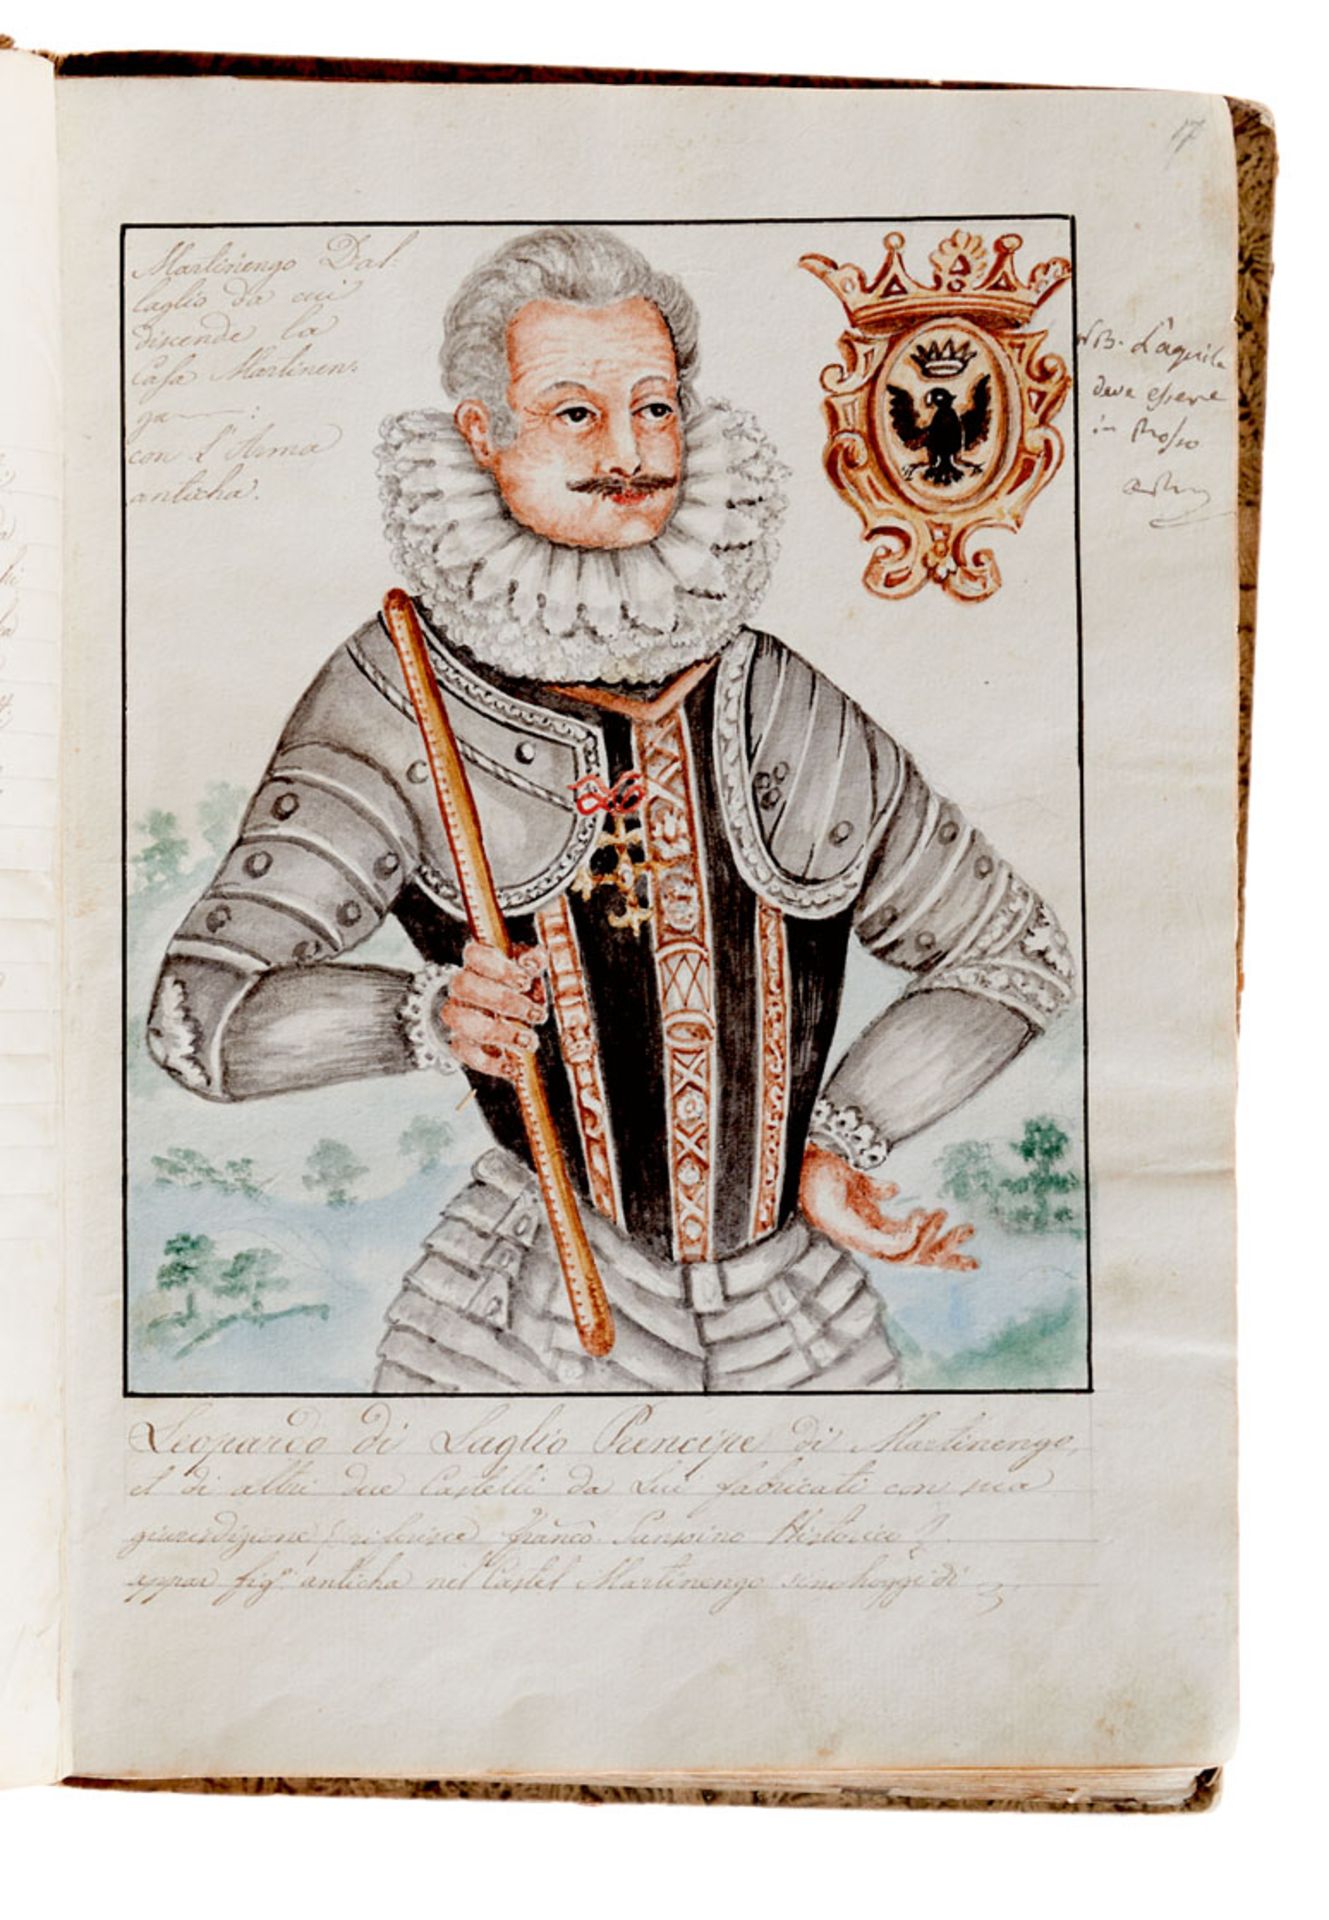 17
Martinengo Dal:
laglio da cui
discende la
Casa Martinen:
ga :
con l'Arma
anticha.
NB. L'aquila
deve essere
in Rosso
Leopardo di Laglio Prencipe di Martinengo,
et di altri due Castelli da Lui fabricati con sua
giurisdizione riferisce Franco. Sansoino Historico
appar fig.ª anticha nel Castel Martinengo sino hoggi dì